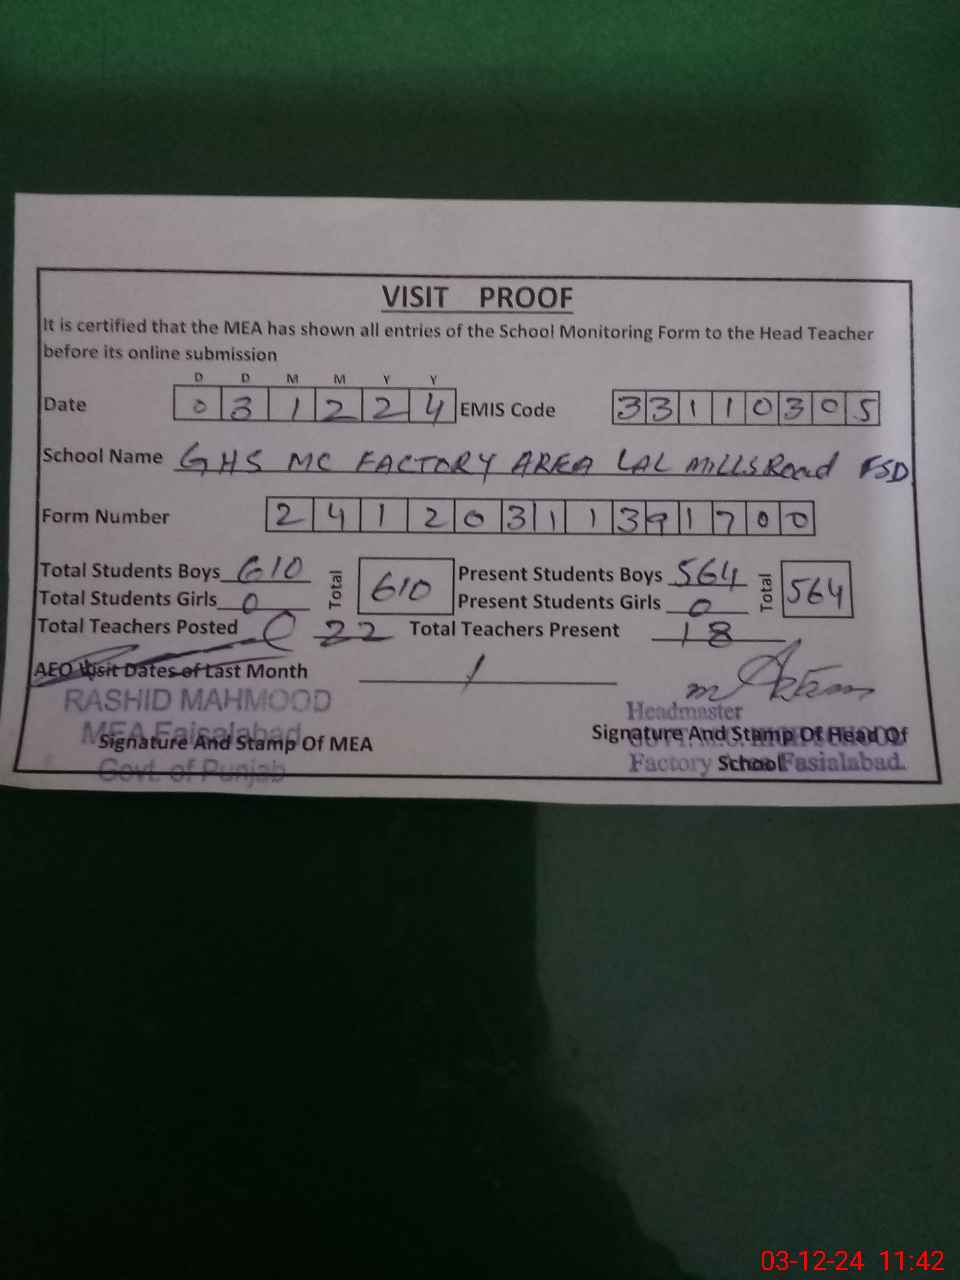 VISIT PROOF
It is certified that the MEA has shown all entries of the School Monitoring Form to the Head Teacher
before its online submission
D D M M Y Y
Date 0 3 1 2 2 4 EMIS Code 3 3 1 1 0 3 0 5
School Name GHS MC FACTORY AREA LAL MILLS Road FSD
Form Number 2 4 1 2 0 3 1 1 3 9 1 7 0 0
Total Students Boys 610 Total 610 Present Students Boys 564 Total 564
Total Students Girls 0 Present Students Girls 0
Total Teachers Posted 22 Total Teachers Present 18
AEO Visit Dates of Last Month /
RASHID MAHMOOD
MEA Faisalabad
Govt. of Punjab
Signature And Stamp Of MEA
Headmaster
Factory Area Fasialabad.
Signature And Stamp Of Head Of
School
03-12-24 11:42